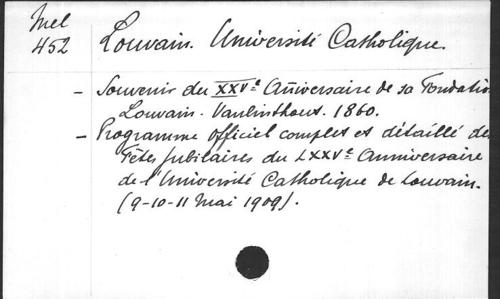 Mel
452
Louvain. Université Catholique.
- Souvenir du XXVe Anniversaire de sa Fondatio
Louvain. Vanlinthout. 1860.
- Programme officiel complet et détaillé des
Fêtes jubilaires du LXXVe Anniversaire
de l'Université Catholique de Louvain.
(9-10-11 Mai 1909).